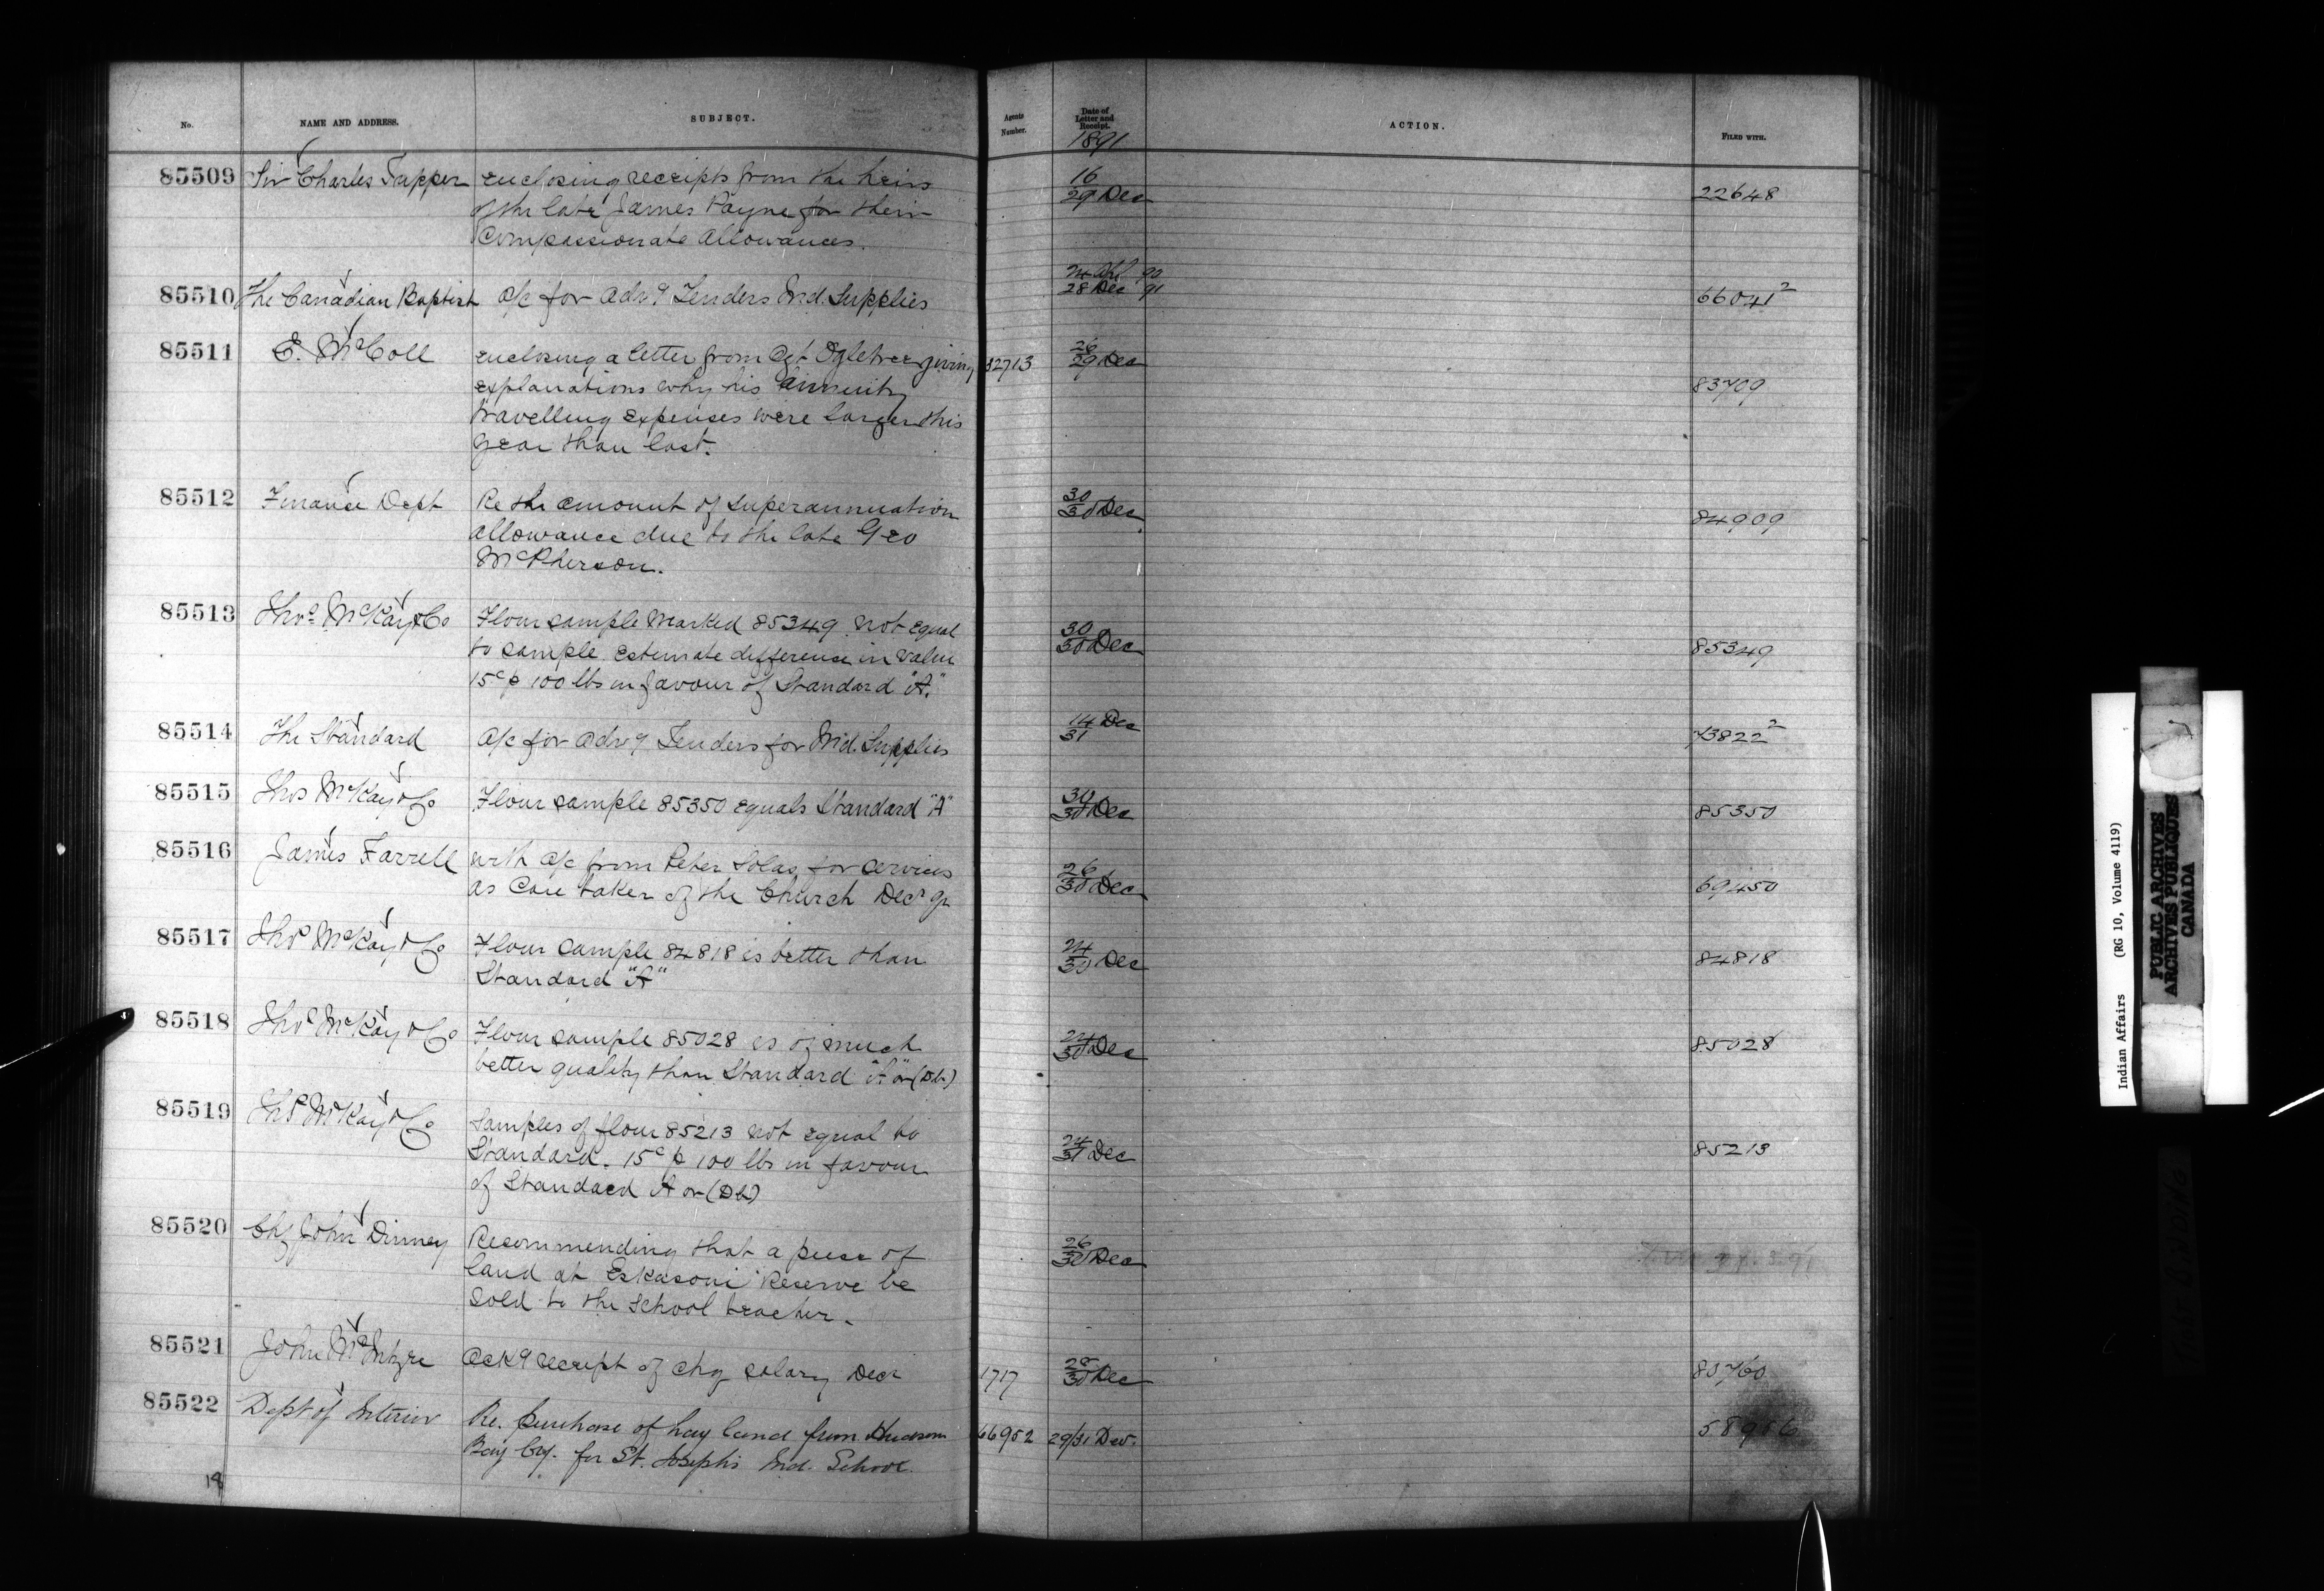 No. NAME AND ADDRESS. SUBJECT. Agents Number. Date of Letter and Receipt. ACTION. FILED WITH.
1891
85509 Sir Charles Tupper enclosing receipts from the heirs 16/29 Dec 22648
of the late James Payne for their
Compassionate Allowances.
85510 The Canadian Baptist a/c for Adv9 Tenders Ind. Supplies 24 Apl 90 66041²
28 Dec 91
85511 E. McColl enclosing a letter from Agt Ogletree giving 12713 26/29 Dec
explanations why his annuity 83709
travelling expenses were larger this
year than last.
85512 Finance Dept Re the amount of superannuation 30/30 Dec 84909
allowance due to the late Geo
McPherson.
85513 Thos McKay & Co Flour sample marked 85349 not equal 30/30 Dec
to sample. estimate difference in value 85349
15c p 100 lbs in favour of Standard "A."
85514 The Standard a/c for Adv9 Tenders for Ind. Supplies 14 Dec/31 73822²
85515 Thos McKay & Co Flour sample 85350 equals Standard "A" 30/30 Dec 85350
85516 James Farrell with a/c from Peter for services 26/30 Dec
as Care taker of the Church Decr 69450
85517 Thos McKay & Co Flour sample 84818 is better than 24/30 Dec 84818
Standard "A"
85518 Thos McKay & Co Flour sample 85028 is of much 24/30 Dec 85028
better quality than Standard "A" or (Db)
85519 Thos McKay & Co Samples of flour 85213 not equal to
Standard. 15c p 100 lbs in favour 24/31 Dec 85213
of Standard A or (Db)
85520 Chf John Dinney Recommending that a piece of 26/30 Dec
land at Eskasoni Reserve be
sold to the school teacher.
85521 John McIntyre Ack9 receipt of chq salary Decr 1717 28/30 Dec 83760
85522 Dept of Interior Re. purchase of hay land from Hudson 66952 29/31 Dec.
Bay Coy. for St. Joseph's Ind. School.
19
Indian Affairs (RG 10, Volume 4119)
PUBLIC ARCHIVES
ARCHIVES PUBLIQUES
CANADA